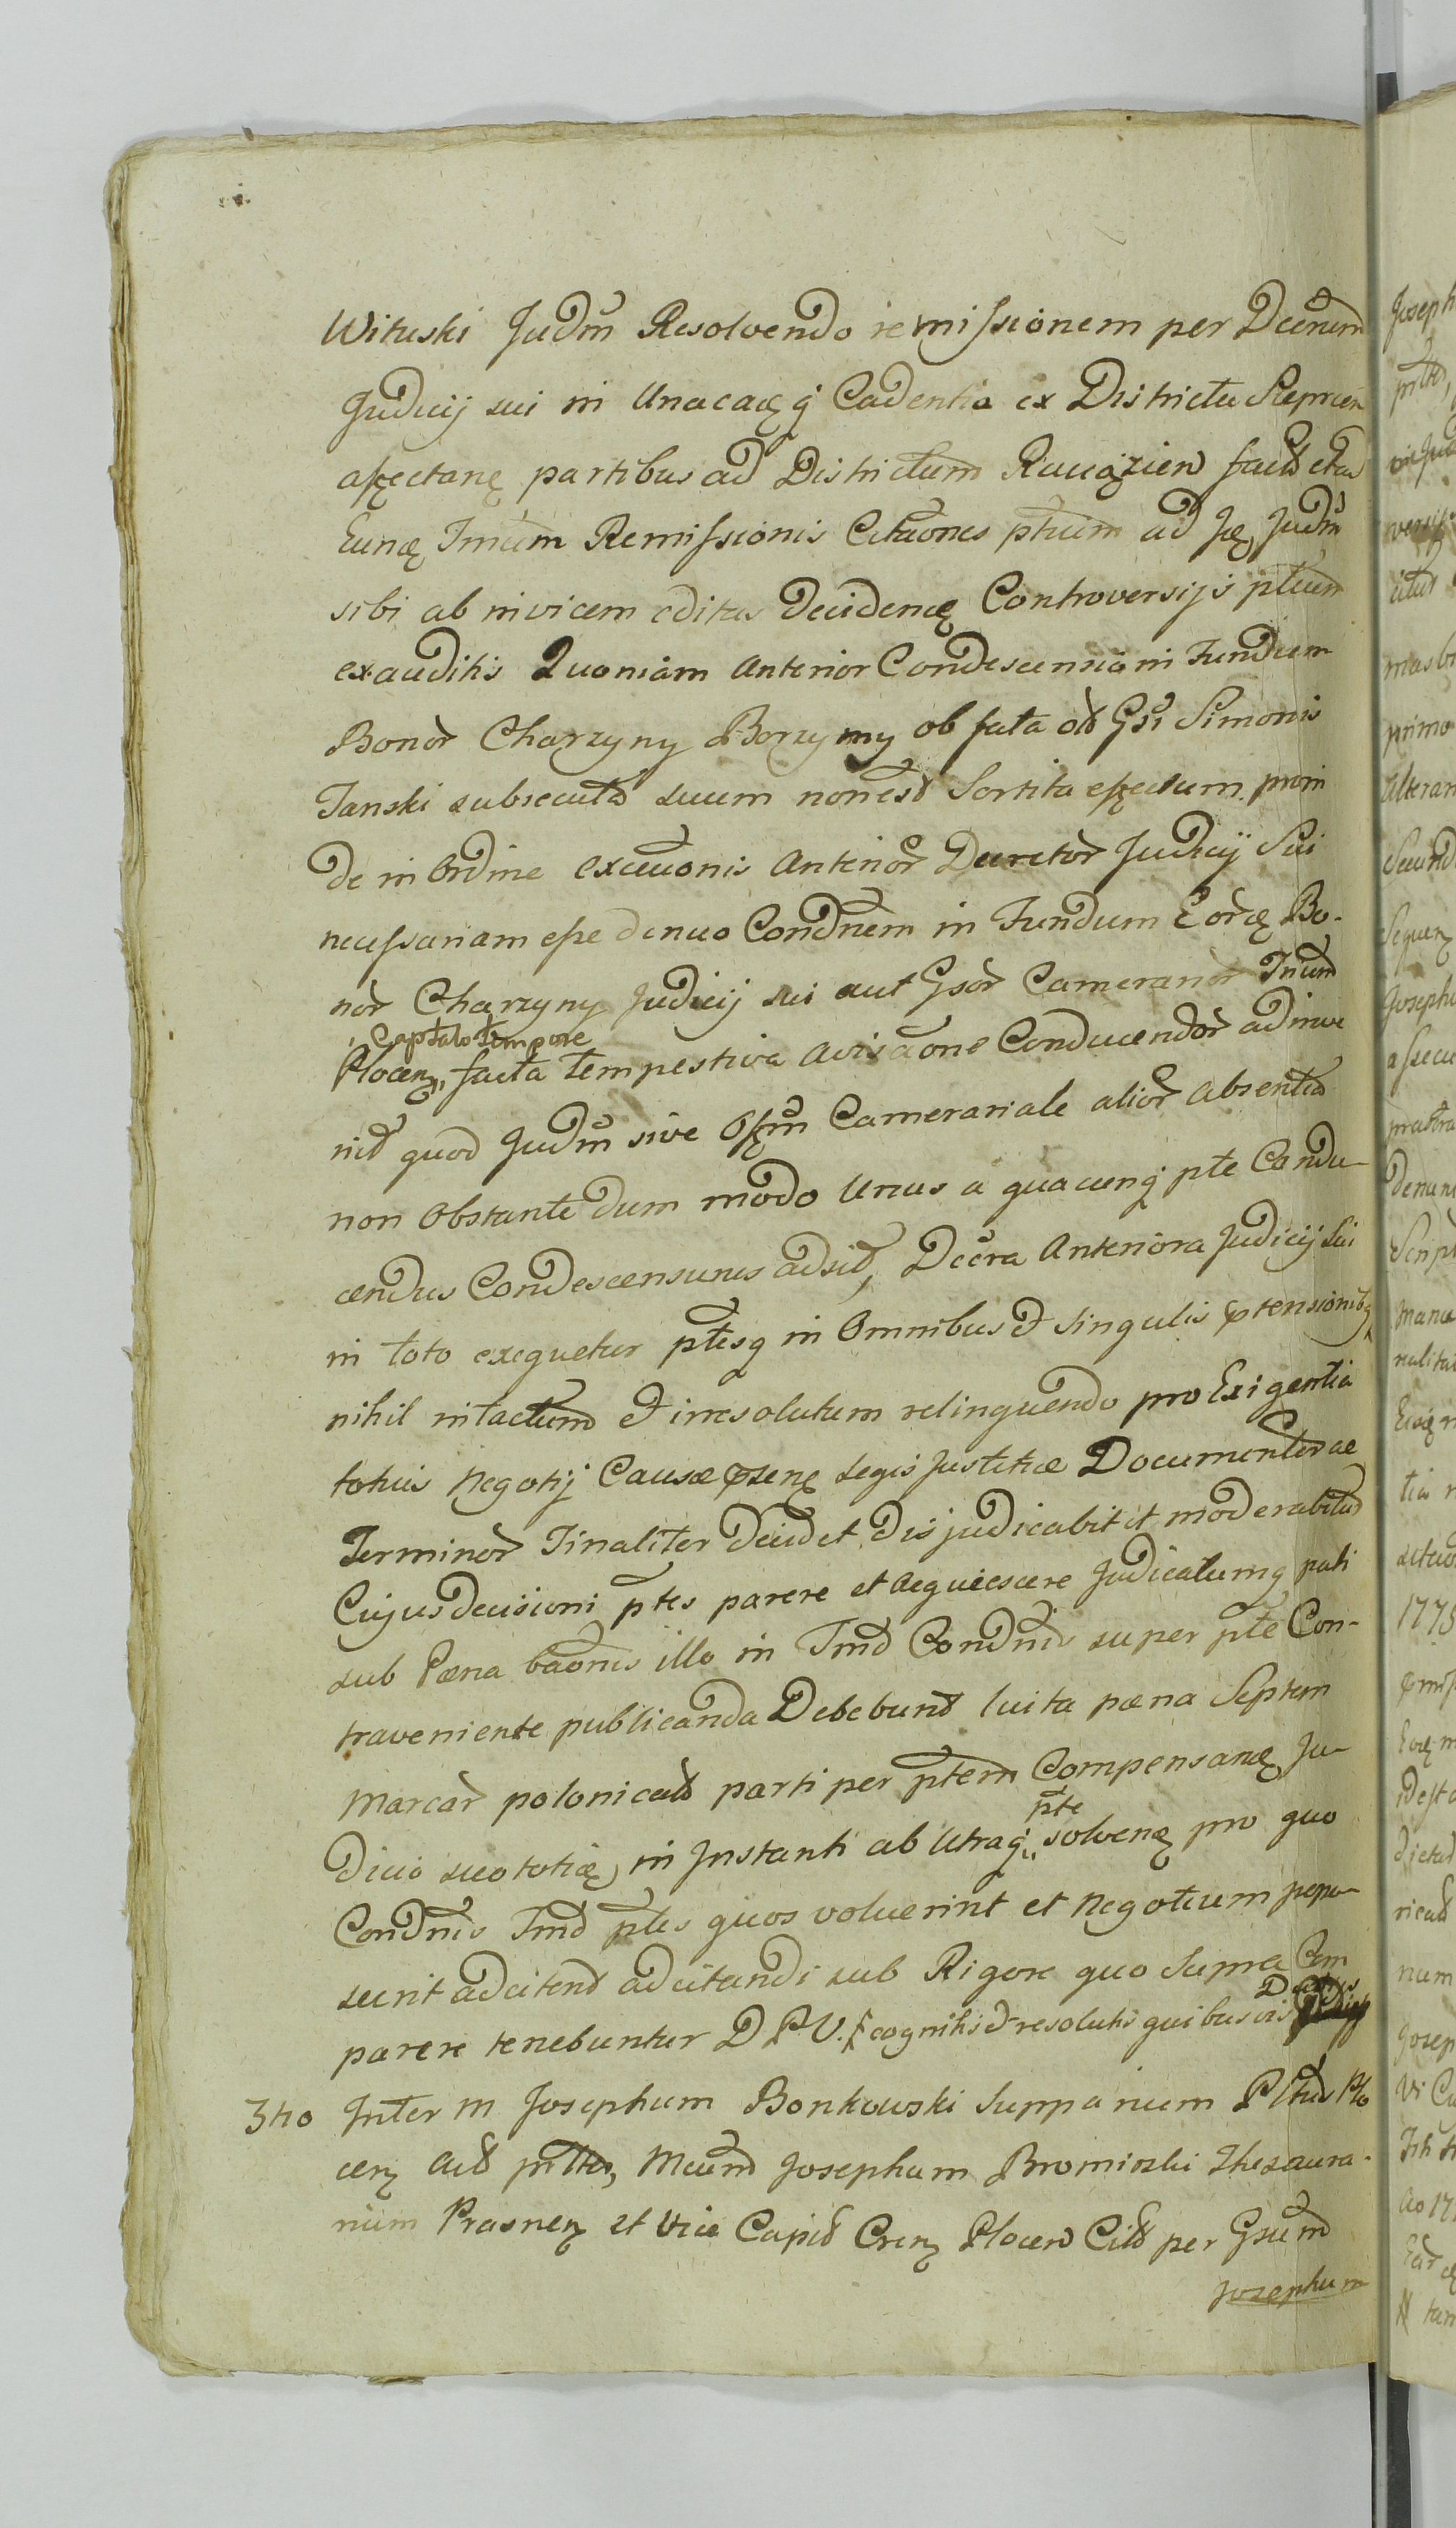 Wituski Judm Resolvendo remissionem per Decrum
Judicij sui in Unacaq q Cadentia ex Districtu Sieprcen
affectanę partibus ad Districtum Raciązien
Eunq Tmum Remissionis Citaones ptium ad Judm
sibi ab invicem editas decidenq Controversijs ptium
exauditis Quoniam Anterior Condescensio in Fundum
Bonor Charzyny Borzymy ob fata olt Gsi Simonis
Janski subsecuta suum non est Sortita effectum proin
de in Ordine execuonis Anterior Decretor Judicij Sui
necessariam esse denuo Condnem in Fundum Eorq Bo-
nor Charzyny Judicij sui aut Gsor Camerarior Trium
Captato tempore
Plocenȝ, facta tempestiva avisaone Conducendor adinve
nit quod Judm sive Offm Camerariale alior absentia
non Obstante dum modo Unus a quacunq pte Condu-
cendus Condescensurus adsit, Decra Anteriora Judicij Sui
in toto exequetur ptesq in Omnibus et singulis ptensionibȝ
nihil intactum et irresolutum relinquendo pro Exigentia
totius Negotij Causæ Legis Justitiæ Documentor ac
Terminor Finaliter decidet disjudicabit et moderabitur
Cujus decisioni ptes parere et acquiescere Judicatumq pati
sub Pæna baonis illo in Tmo Condnis super pte Con-
traveniente publicanda Debebunt luita pæna Septem
Marcar polonical parti per ptem Compensanę Ju-
pte
dicio suo totię in Instanti ab Utraq solvenę pro quo
Condnis Tmo ptes quos voluerint et Negotium popo-
scerit adcitent adcitandi sub Rigore quo Supra Com
Dattis
parere tenebuntur D P. V. cognitis et resolutis quibusvis
3tio Inter M Josephum Bonkowski Suppanum Pltus Plo
cenȝ Act Mcum Josephum Bromirski Thesaura-
rium Prasnenȝ et Vice Capit Crenȝ Plocen Citt per Gsum
Josephum